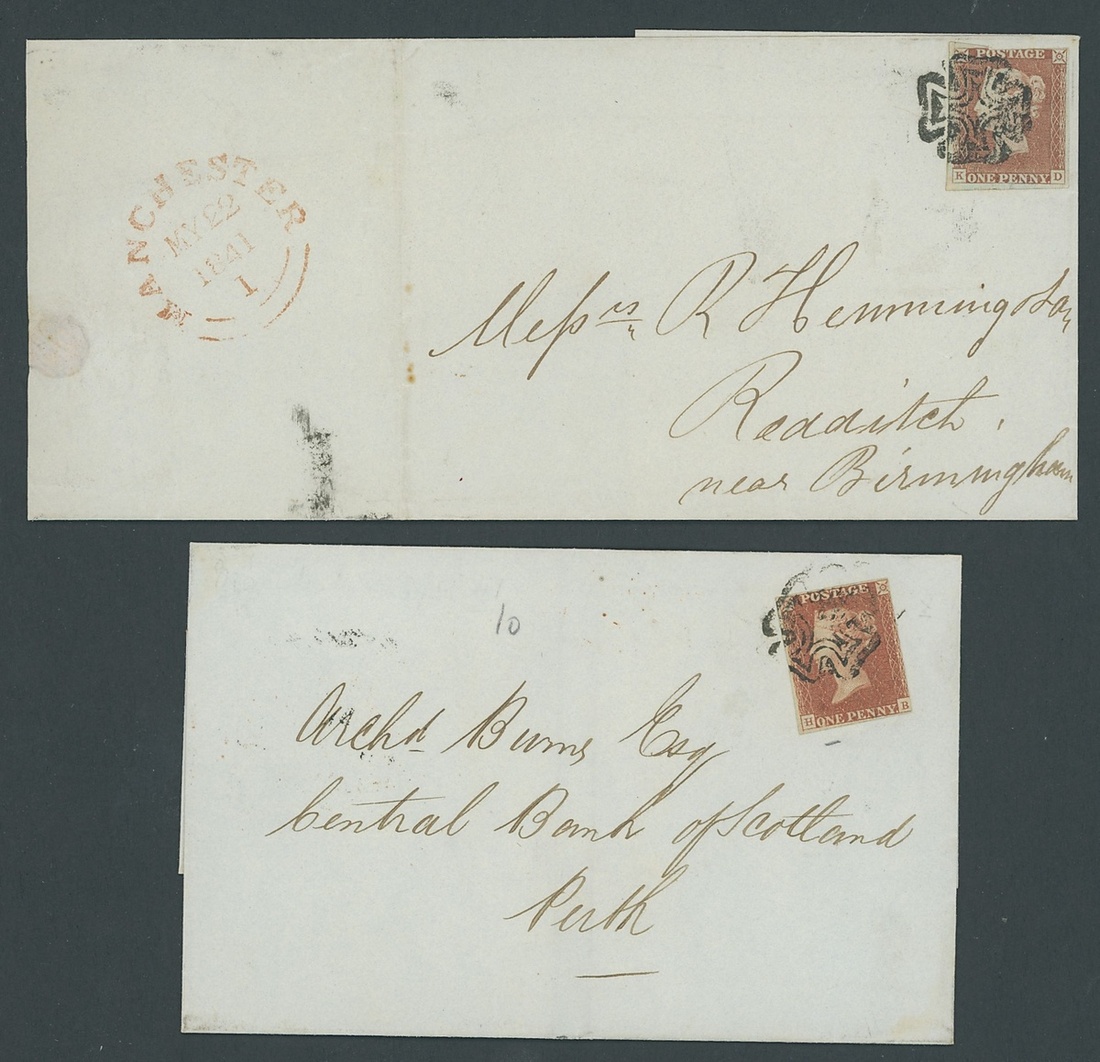 POSTAGE
K ONE PENNY D
MANCHESTER
MY 22
1841
1
Messrs R Hemming & Son
Redditch,
near Birmingham
POSTAGE
H ONE PENNY B
10
Archd Burns Esq
Central Bank of Scotland
Perth